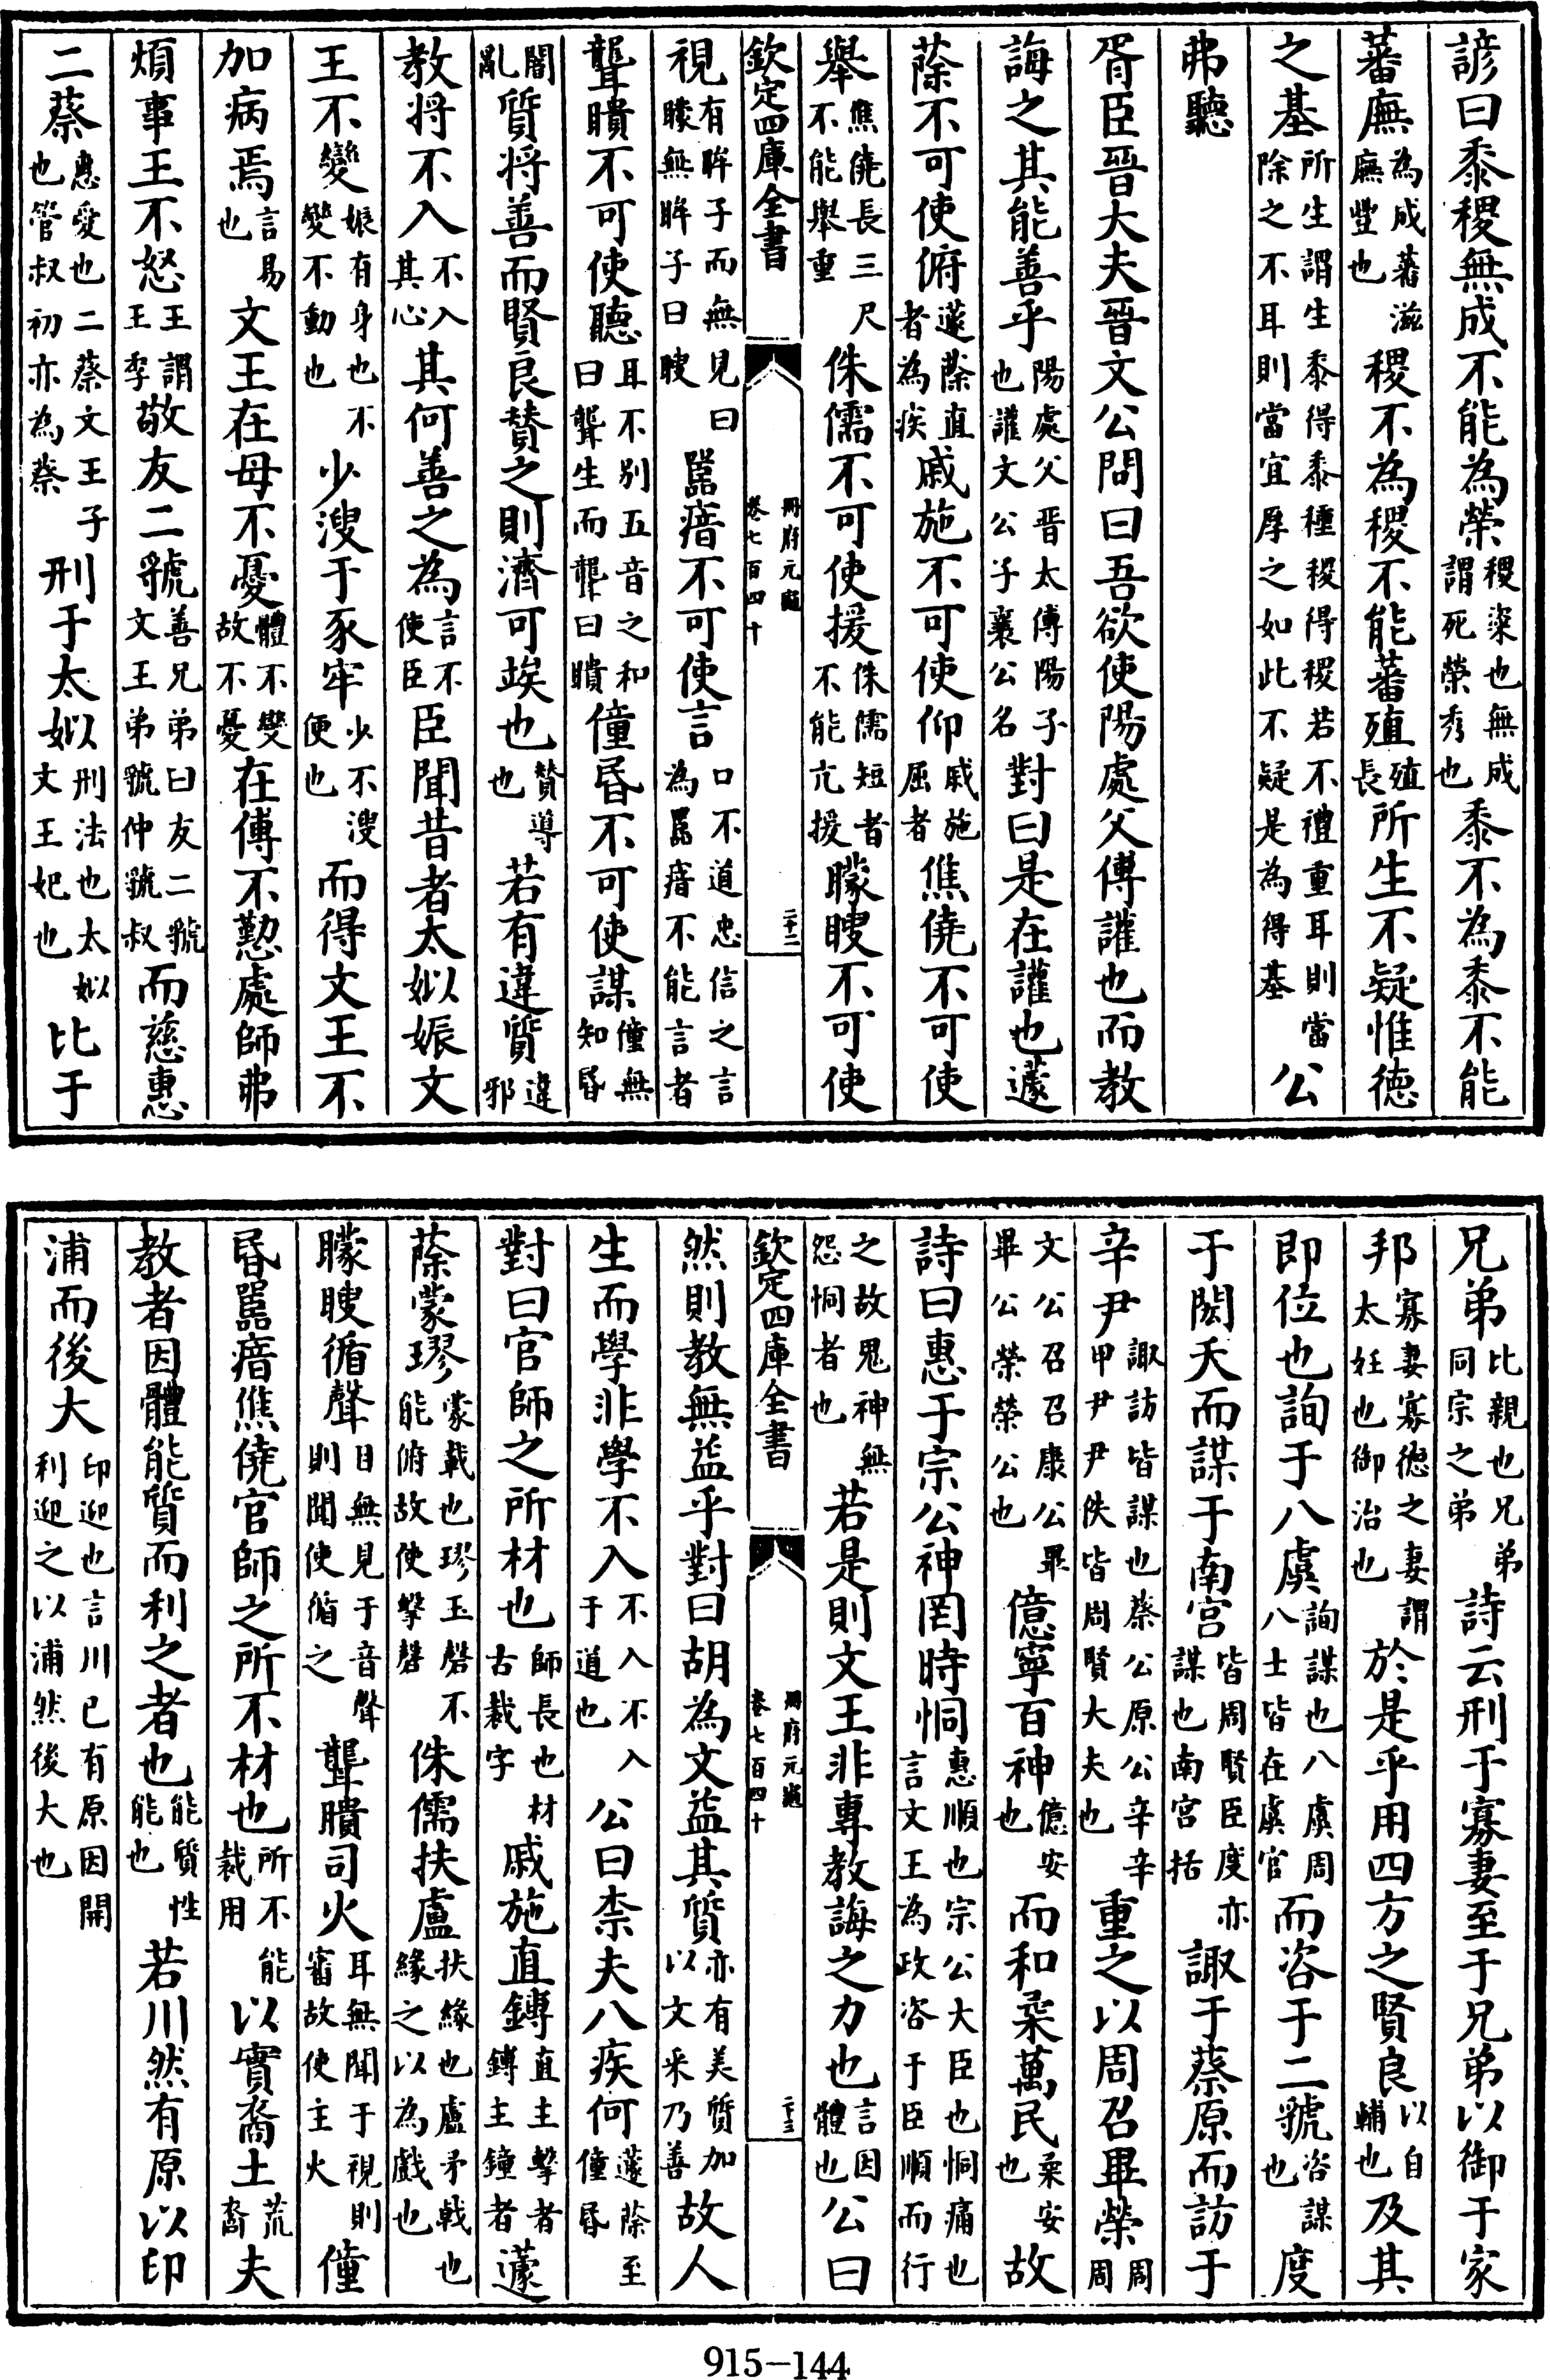 諺曰黍稷無成不能為榮稷粢也無成謂死榮秀也黍不為黍不能
蕃廡為成蕃滋廡豐也稷不為稷不能蕃殖殖長所生不疑惟德
之基所生謂生黍得黍種稷得稷若不禮重耳則當除之不耳則當宜厚之如此不疑是為得基公
弗聽
胥臣晉大夫晉文公問曰吾欲使陽處父傅讙也而教
誨之其能善乎陽處父晉太傅陽子也讙文公子襄公名對曰是在讙也蘧
蒢不可使俯蘧蒢直者為疾戚施不可使仰戚施屈者僬僥不可使
舉僬僥長三尺不能舉重侏儒不可使援侏儒短者不能亢援矇瞍不可使
欽定四庫全書
冊府元龜
卷七百四十
二十二
視有眸子而無見曰矇無眸子曰瞍嚚瘖不可使言口不道忠信之言為嚚瘖不能言者
聾聵不可使聽耳不別五音之和曰聾生而聾曰聵僮昏不可使謀僮無知昏
闇亂質將善而賢良贊之則濟可竢也贊導也若有違質違邪
教將不入不入其心其何善之為言不使臣臣聞昔者太姒娠文
王不變娠有身也不變不動也少溲于豕牢少不溲便也而得文王不
加病焉言易也文王在母不憂體不變故不憂在傅不勤處師弗
煩事王不怒王謂王季敬友二虢善兄弟曰友二虢文王弟虢仲虢叔而慈惠
二蔡惠愛也二蔡文王子也管叔初亦為蔡刑于太姒刑法也太姒文王妃也比于
兄弟比親也兄弟同宗之弟詩云刑于寡妻至于兄弟以御于家
邦寡妻寡德之妻謂太妊也御治也於是乎用四方之賢良以自輔也及其
即位也詢于八虞詢謀也八虞周八士皆在虞官而咨于二虢咨謀也度
于閎夭而謀于南宮皆周賢臣度亦謀也南宮括諏于蔡原而訪于
辛尹諏訪皆謀也蔡公原公辛辛甲尹尹佚皆周賢大夫也重之以周召畢榮周周
文公召召康公畢畢公榮榮公也億寧百神億安也而和柔萬民柔安也故
詩曰惠于宗公神罔時恫惠順也宗公大臣也恫痛也言文王為政咨于臣順而行
之故鬼神無怨恫者也若是則文王非專教誨之力也言因體也公曰
欽定四庫全書
冊府元龜
卷七百四十
二十三
然則教無益乎對曰胡為文益其質亦有美質加以文采乃善故人
生而學非學不入不入不入于道也公曰柰夫八疾何蘧蒢至僮昏
對曰官師之所材也師長也材古裁字戚施直鎛直主擊者鎛主鐘者蘧
蒢蒙璆蒙載也璆玉磬不能俯故使擊磬侏儒扶盧扶緣也盧矛戟也緣之以為戲也
矇瞍循聲目無見于音聲則聞使循之聾聵司火耳無聞于視則審故使主火僮
昏嚚瘖僬僥官師之所不材也所不能裁用以實裔土荒裔夫
教者因體能質而利之者也能質性能也若川然有原以卬
浦而後大卬迎也言川已有原因開利迎之以浦然後大也
915-144